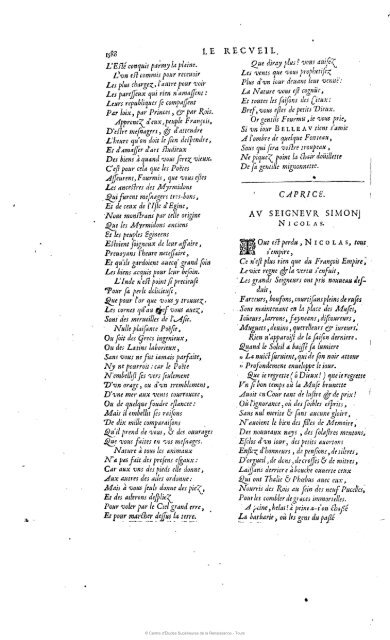 1588
LE RECVEIL
L'Esté conquis parmy la plaine.
L'vn est commis pour receuoir
Les plus chargez, l'autre pour voir
Les paresseux qui rien n'amassent:
Leurs republiques se compassent
Par loix, par Princes, & par Rois.
Apprenez d'eux, peuple François,
D'estre mesnagers, & d'attendre
L'heure qu'on doit le sien despendre,
Et d'amasser d'ars studieux
Des biens à quand vous serez vieux.
C'est pour cela que les Poëtes
Asseurent, Fourmis, que vous estes
Les ancestres des Myrmidons
Qui furent mesnagers tres-bons,
Et de ceux de l'Isle d'Egine,
Nous monstrans par telle origine
Que les Myrmidons anciens
Et les peuples Egineens
Estoient soigneux de leur affaire,
Preuoyans l'heure necessaire,
Et qu'ils gardoient auecq' grand soin
Les biens acquis pour leur besoin.
L'Inde n'est point si precieuse
Pour sa perle delicieuse,
Que pour l'or que vous y trouuez.
Les cornes qu'au chef vous auez,
Sont des merueilles de l'Asie.
Nulle plaisante Poësie,
Ou soit des Grecs ingenieux,
Ou des Latins laborieux,
Sans vous ne fut iamais parfaite,
Ny ne pourroit: car le Poëte
N'embellist ses vers seulement
D'vn orage, ou d'vn tremblement,
D'vne mer aux vents courroucée,
Ou de quelque foudre eslancée:
Mais il embellist ses raisons
De dix mille comparaisons
Qu'il prend de vous, & des ouurages
Que vous faites en vos mesnages.
Nature à tous les animaux
N'a pas fait des presens esgaux:
Car aux vns des pieds elle donne,
Aux autres des ailes ordonne:
Mais à vous seuls donne des piez,
Et des aillerons despliez
Pour voler par le Ciel grand erre,
Et pour marcher dessus la terre.
Que diray plus? vous auisez
Les vents que vous prophetisez
Plus d'vn iour deuant leur venuë:
La Nature vous est cognüe,
Et toutes les saisons des Cieux:
Bref, vous estes de petits Dieux.
Or gentils Fourmis, ie vous prie,
Si vn iour BELLEAV tient s'amie
A l'ombre de quelque Fouteau,
Sous qui sera vostre troupeau,
Ne piquez point la chair douillette
De sa gentille mignonnette.
CAPRICE.
AV SEIGNEVR SIMON
NICOLAS.
Tout est perdu, NICOLAS, tout
s'empire,
Ce n'est plus rien que du François Empire,
Le vice regne & la vertu s'enfuit,
Les grands Seigneurs ont pris nouueau des-
duit,
Farceurs, boufons, courtisans pleins de ruses
Sont maintenant en la place des Muses,
Ioüeurs, larrons, fayneans, discoureurs,
Muguets, deuins, querelleurs & iureurs.
Rien n'apparoist de la saison derniere.
Quand le Soleil a baissé sa lumiere
» La nuict suruient, qui de son noir atour
» Profondement enueloppe le iour.
Que ie regrette (ô Dieux!) que ie regrette
Vn si bon temps où la Muse brunette
Auoit en Cour tant de lustre & de pris!
Où l'ignorance, où des foibles espris,
Sans nul merite & sans aucune gloire,
N'auoient le bien des filles de Memoire,
Des nouueaux nays, des folastres mentons,
Esclos d'vn iour, des petits auortons
Enflez d'honneurs, de pensions, de tiltres,
D'orgueil, de dons, de crosses & de mitres,
Laissans derriere à bouche ouuerte ceux
Qui ont Thalie & Phœbus auec eux,
Nourris des Rois au sein des neuf Pucelles,
Pour les combler de graces immortelles.
A peine, helas! à peine a-t'on chassé
La barbarie, où les gens du passé
© Centre d'Études Supérieures de la Renaissance - Tours